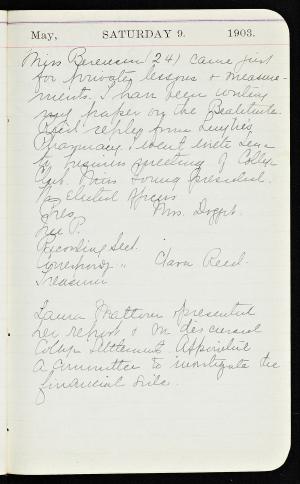 May, SATURDAY 9. 1903.
Miss Berenson (24) came just
for private lessons & measure-
ments. I have been writing
my paper on the Beatitudes.
reply from
Pharmacy. I went with
to business meeting of College
Club. Miss Young President.
Elected Officers
Pres. Mrs. Doggett.
Vice P.
Recording Sect.
Corresponding " Clara Reed.
Treasurer
Laura Mattoon presented
her report & we discussed
College Settlement. Appointed
a committee to investigate the
financial side.